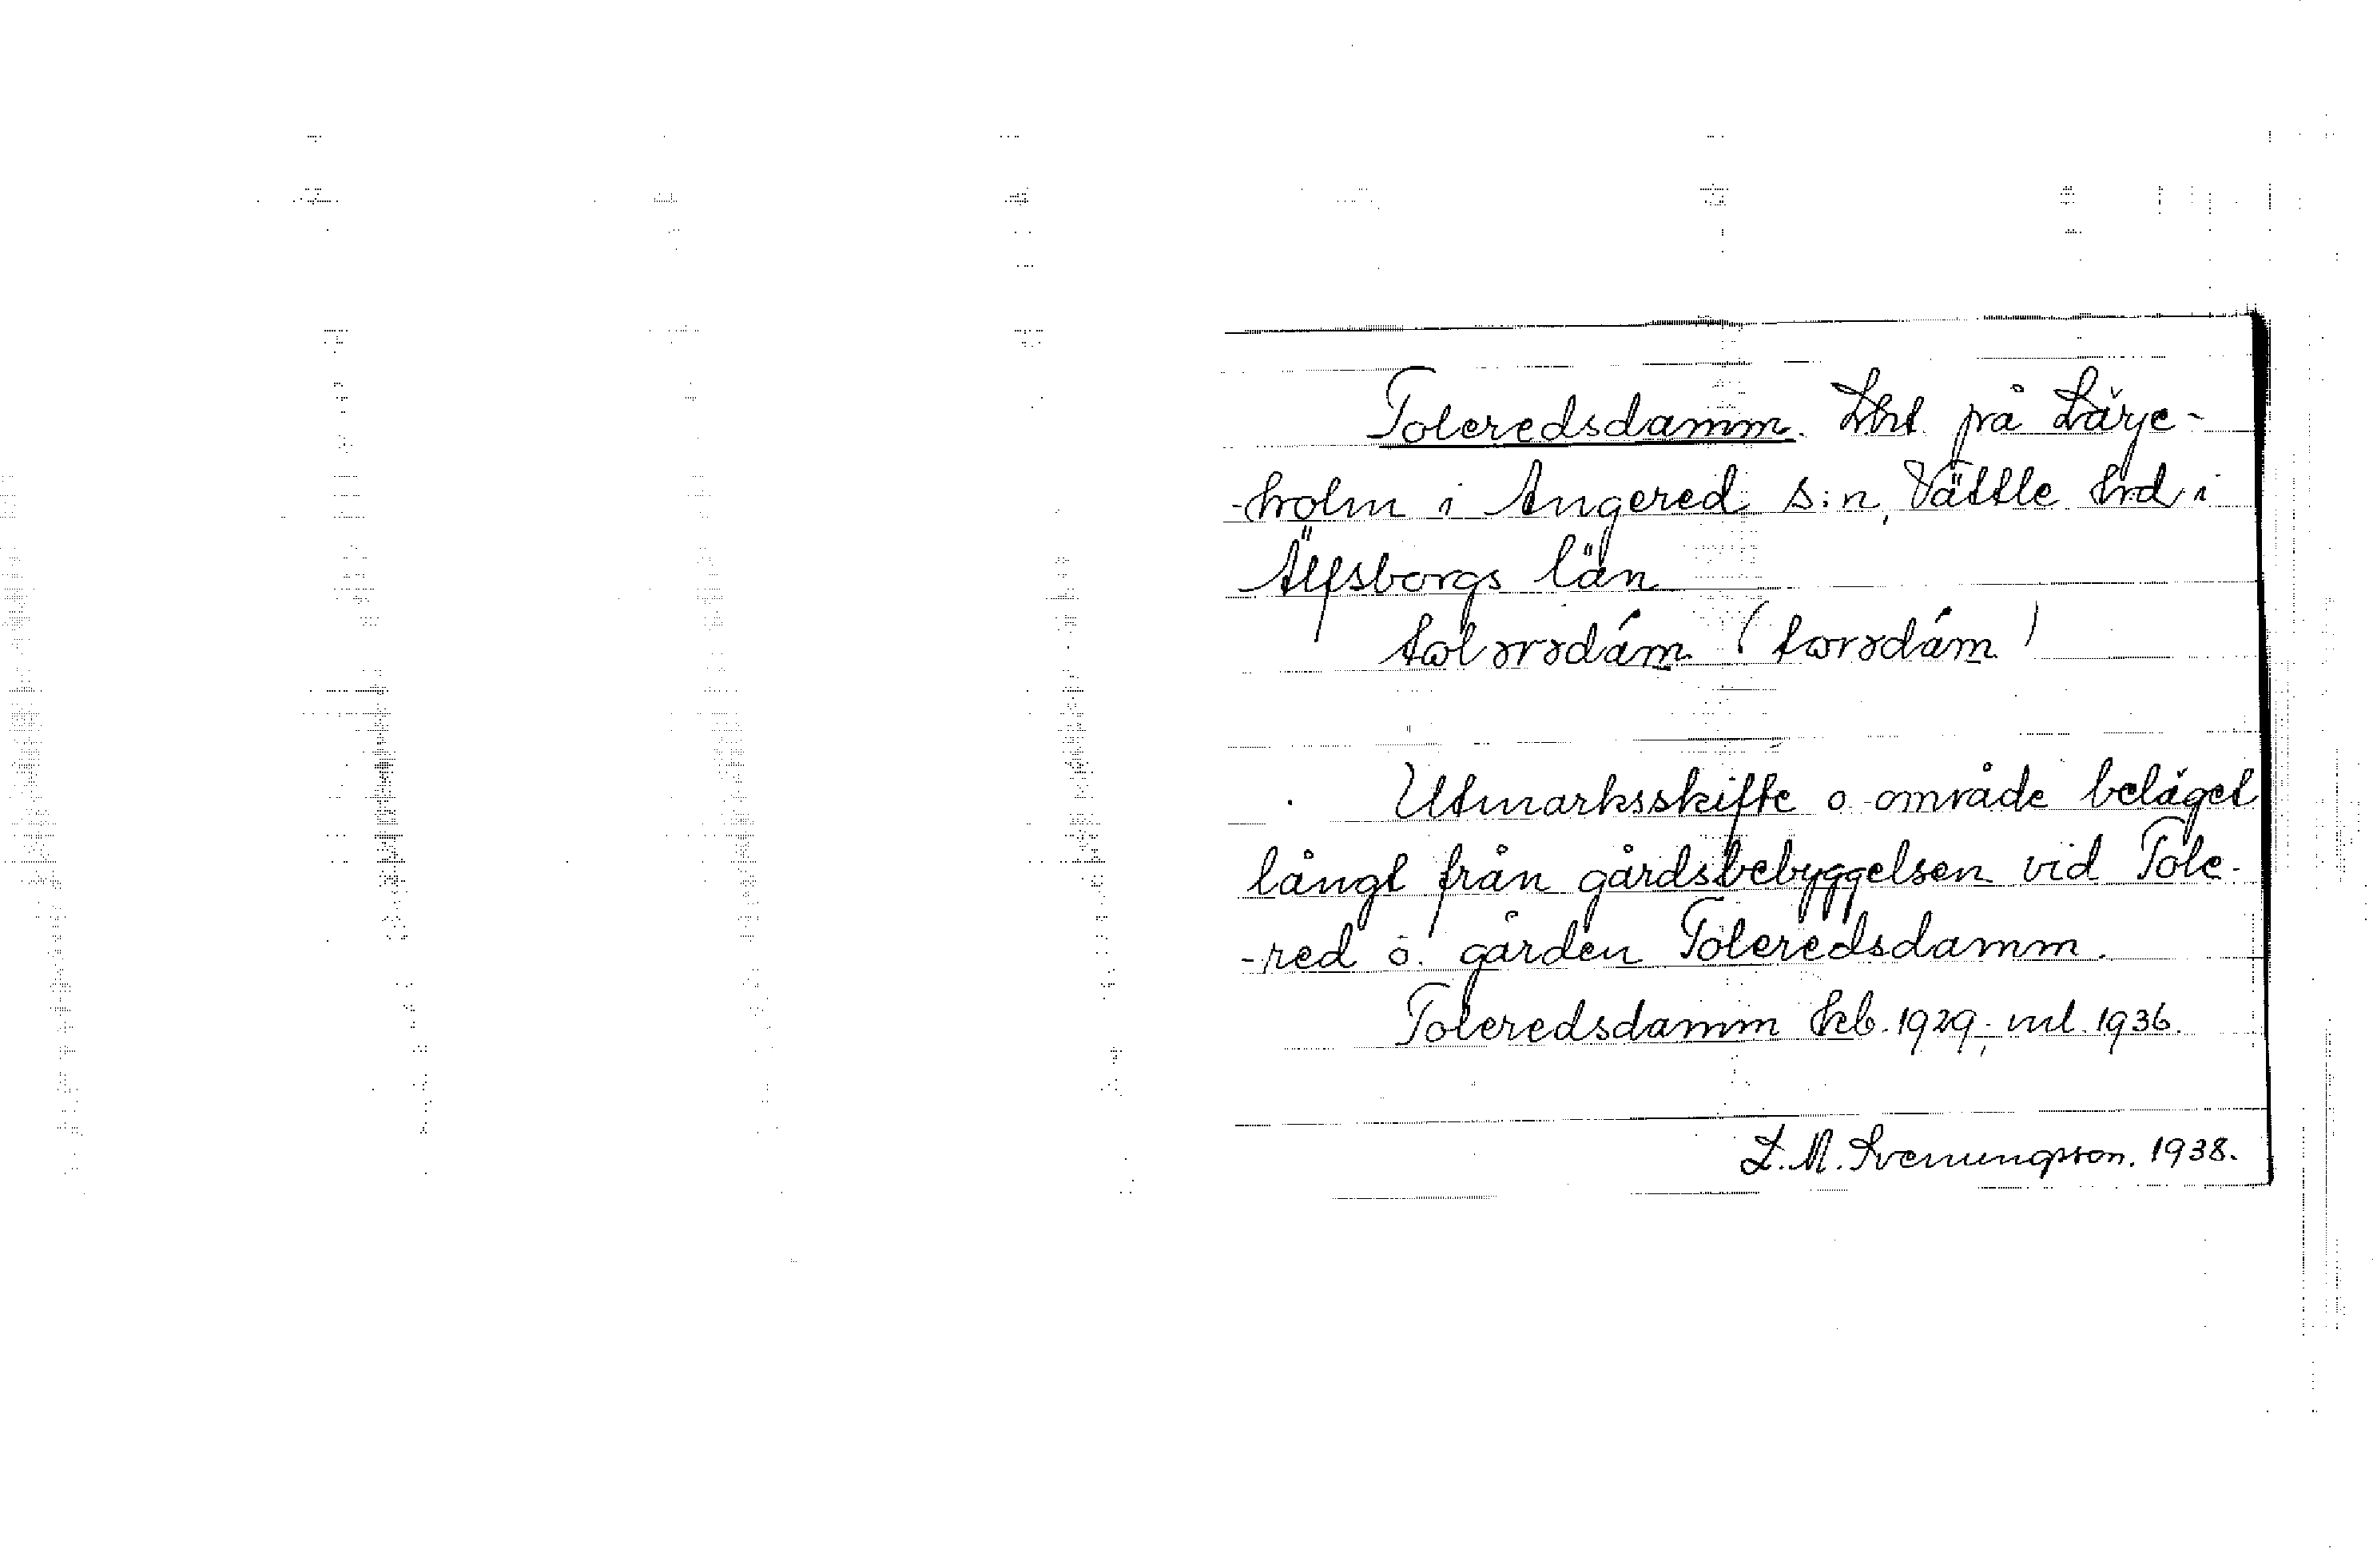 Toleredsdamm. Lht på Lärje-
-holm i Angered s:n, Vättle hd i
Älfsborgs län
(
)
Utmarksskifte o. område beläget
långt från gårdsbebyggelsen vid Tole-
-red o. gården Toleredsdamm.
Toleredsdamm keb. 1929; ml. 1936.
L. M. Svenungsson. 1938.